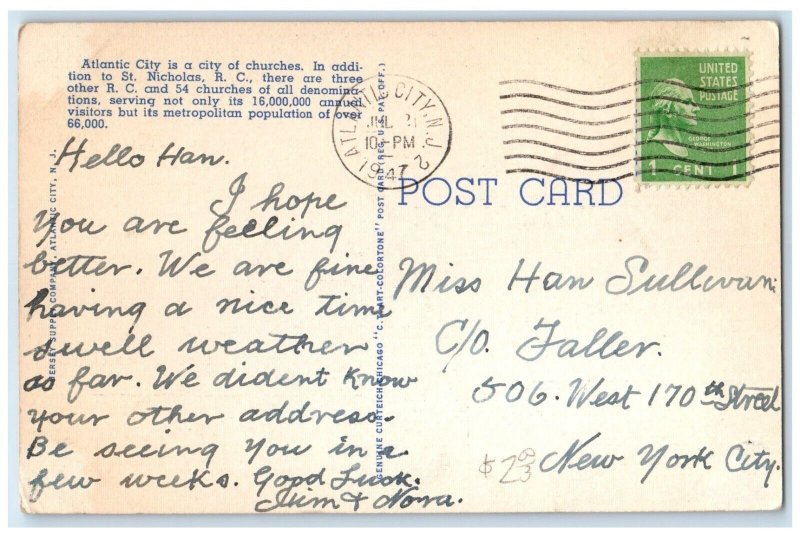 Atlantic City is a city of churches. In addi-
tion to St. Nicholas, R. C., there are three
other R. C. and 54 churches of all denomina-
tions, serving not only its 16,000,000 annual
visitors but its metropolitan population of over
66,000.
Hello Han.
I hope
you are feeling
better. We are fine
having a nice time
swell weather
so far. We dident know
your other address.
Be seeing you in a
few weeks. Good Luck.
Mim & Nora.
JERSEY SUPPLY COMPANY, ATLANTIC CITY, N. J.
GENUINE CURTEICH-CHICAGO "C.T. ART-COLORTONE" POST CARD (REG. U.S. PAT. OFF.)
ATLANTIC CITY, N.J. 2
JUL 21
10 PM
1947
UNITED
STATES
POSTAGE
GEORGE
WASHINGTON
1 CENT 1
POST CARD
Miss Han Sullivan
C/O. Faller.
506. West 170th Street
New York City.
$2.00
3